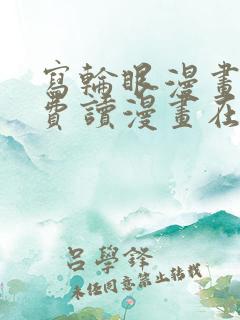 寫輪眼漫畫
費讀漫畫在
呂學鋒
未經同意禁止轉載